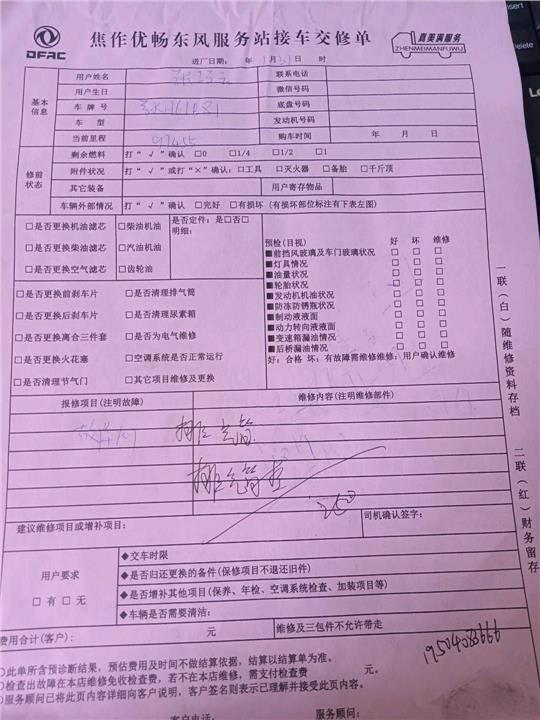 DFAC
焦作优畅东风服务站接车交修单
真美满服务
ZHENMEIMANFUWU
进厂日期: 年 1月31日 时
基本信息
用户姓名 联系电话
用户生日 微信号码
车牌号 底盘号码
车型 发动机号码
当前里程 97455 购车时间 年 月 日
修前状态
剩余燃料 打“√”确认 □0 □1/4 □1/2 □1
附件状况 打“√”或打“×”确认:□工具 □灭火器 □备胎 □千斤顶
其它装备 用户寄存物品
车辆外部情况 打“√”确认 □完好 □有损坏(有损坏部位标注有下表左图)
□是否更换机油滤芯 □柴油机油 是否定件:是□否□
明细:
□是否更换柴油滤芯 □汽油机油
□是否更换空气滤芯 □齿轮油
预检(目视) 好 坏 维修
■前挡风玻璃及车门玻璃状况 □ □ □
■灯具情况 □ □ □
■油量状况 □ □ □
■轮胎状况 □ □ □
■发动机机油状况 □ □ □
■防冻防锈瓶状况 □ □ □
■制动液液面 □ □ □
■动力转向液液面 □ □ □
■变速箱漏油情况 □ □ □
■后桥漏油情况 □ □ □
好:合格 坏:有故障需维修维修:用户确认维修
□是否更换前刹车片 □是否清理排气筒
□是否更换后刹车片 □是否清理尿素箱
□是否更换离合三件套 □是否为电气维修
□是否更换火花塞 □空调系统是否正常运行
□是否清理节气门 □其它项目维修及更换
报修项目(注明故障) 维修内容(注明维修部件)
故障灯 排气管
排气管
250
建议维修项目或增补项目: 司机确认签字:
用户要求
□有 □无
◆交车时限
◆是否归还更换的备件(保修项目不退还旧件)
◆是否增补其他项目(保养、年检、空调系统检查、加装项目等)
◆车辆是否需要清洁:
费用合计(客户): 元 维修及三包件不允许带走
19504088666
此单所含预诊断结果,预估费用及时间不做结算依据,结算以结算单为准。
检查出故障在本店维修免收检查费,若不在本店维修,需支付检查费 元。
服务顾问已将此页内容详细向客户说明,客户签名则表示已理解并接受此页内容。
客户电话: 服务顾问:
一联(白)随维修资料存档 二联(红)财务留存